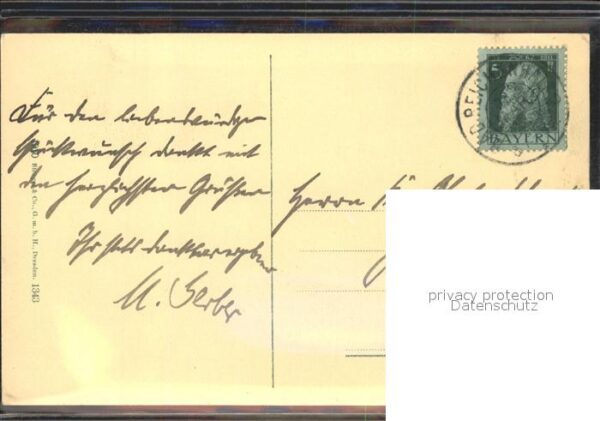 Für den liebenswürdigen
Glückwunsch dankt mit
den herzlichsten Grüßen
Ihr stets dankbar ergebener
M. Gerber
Herrn
5
BAYERN
REICH
Co., G. m. b. H., Dresden. 1343
privacy protection
Datenschutz